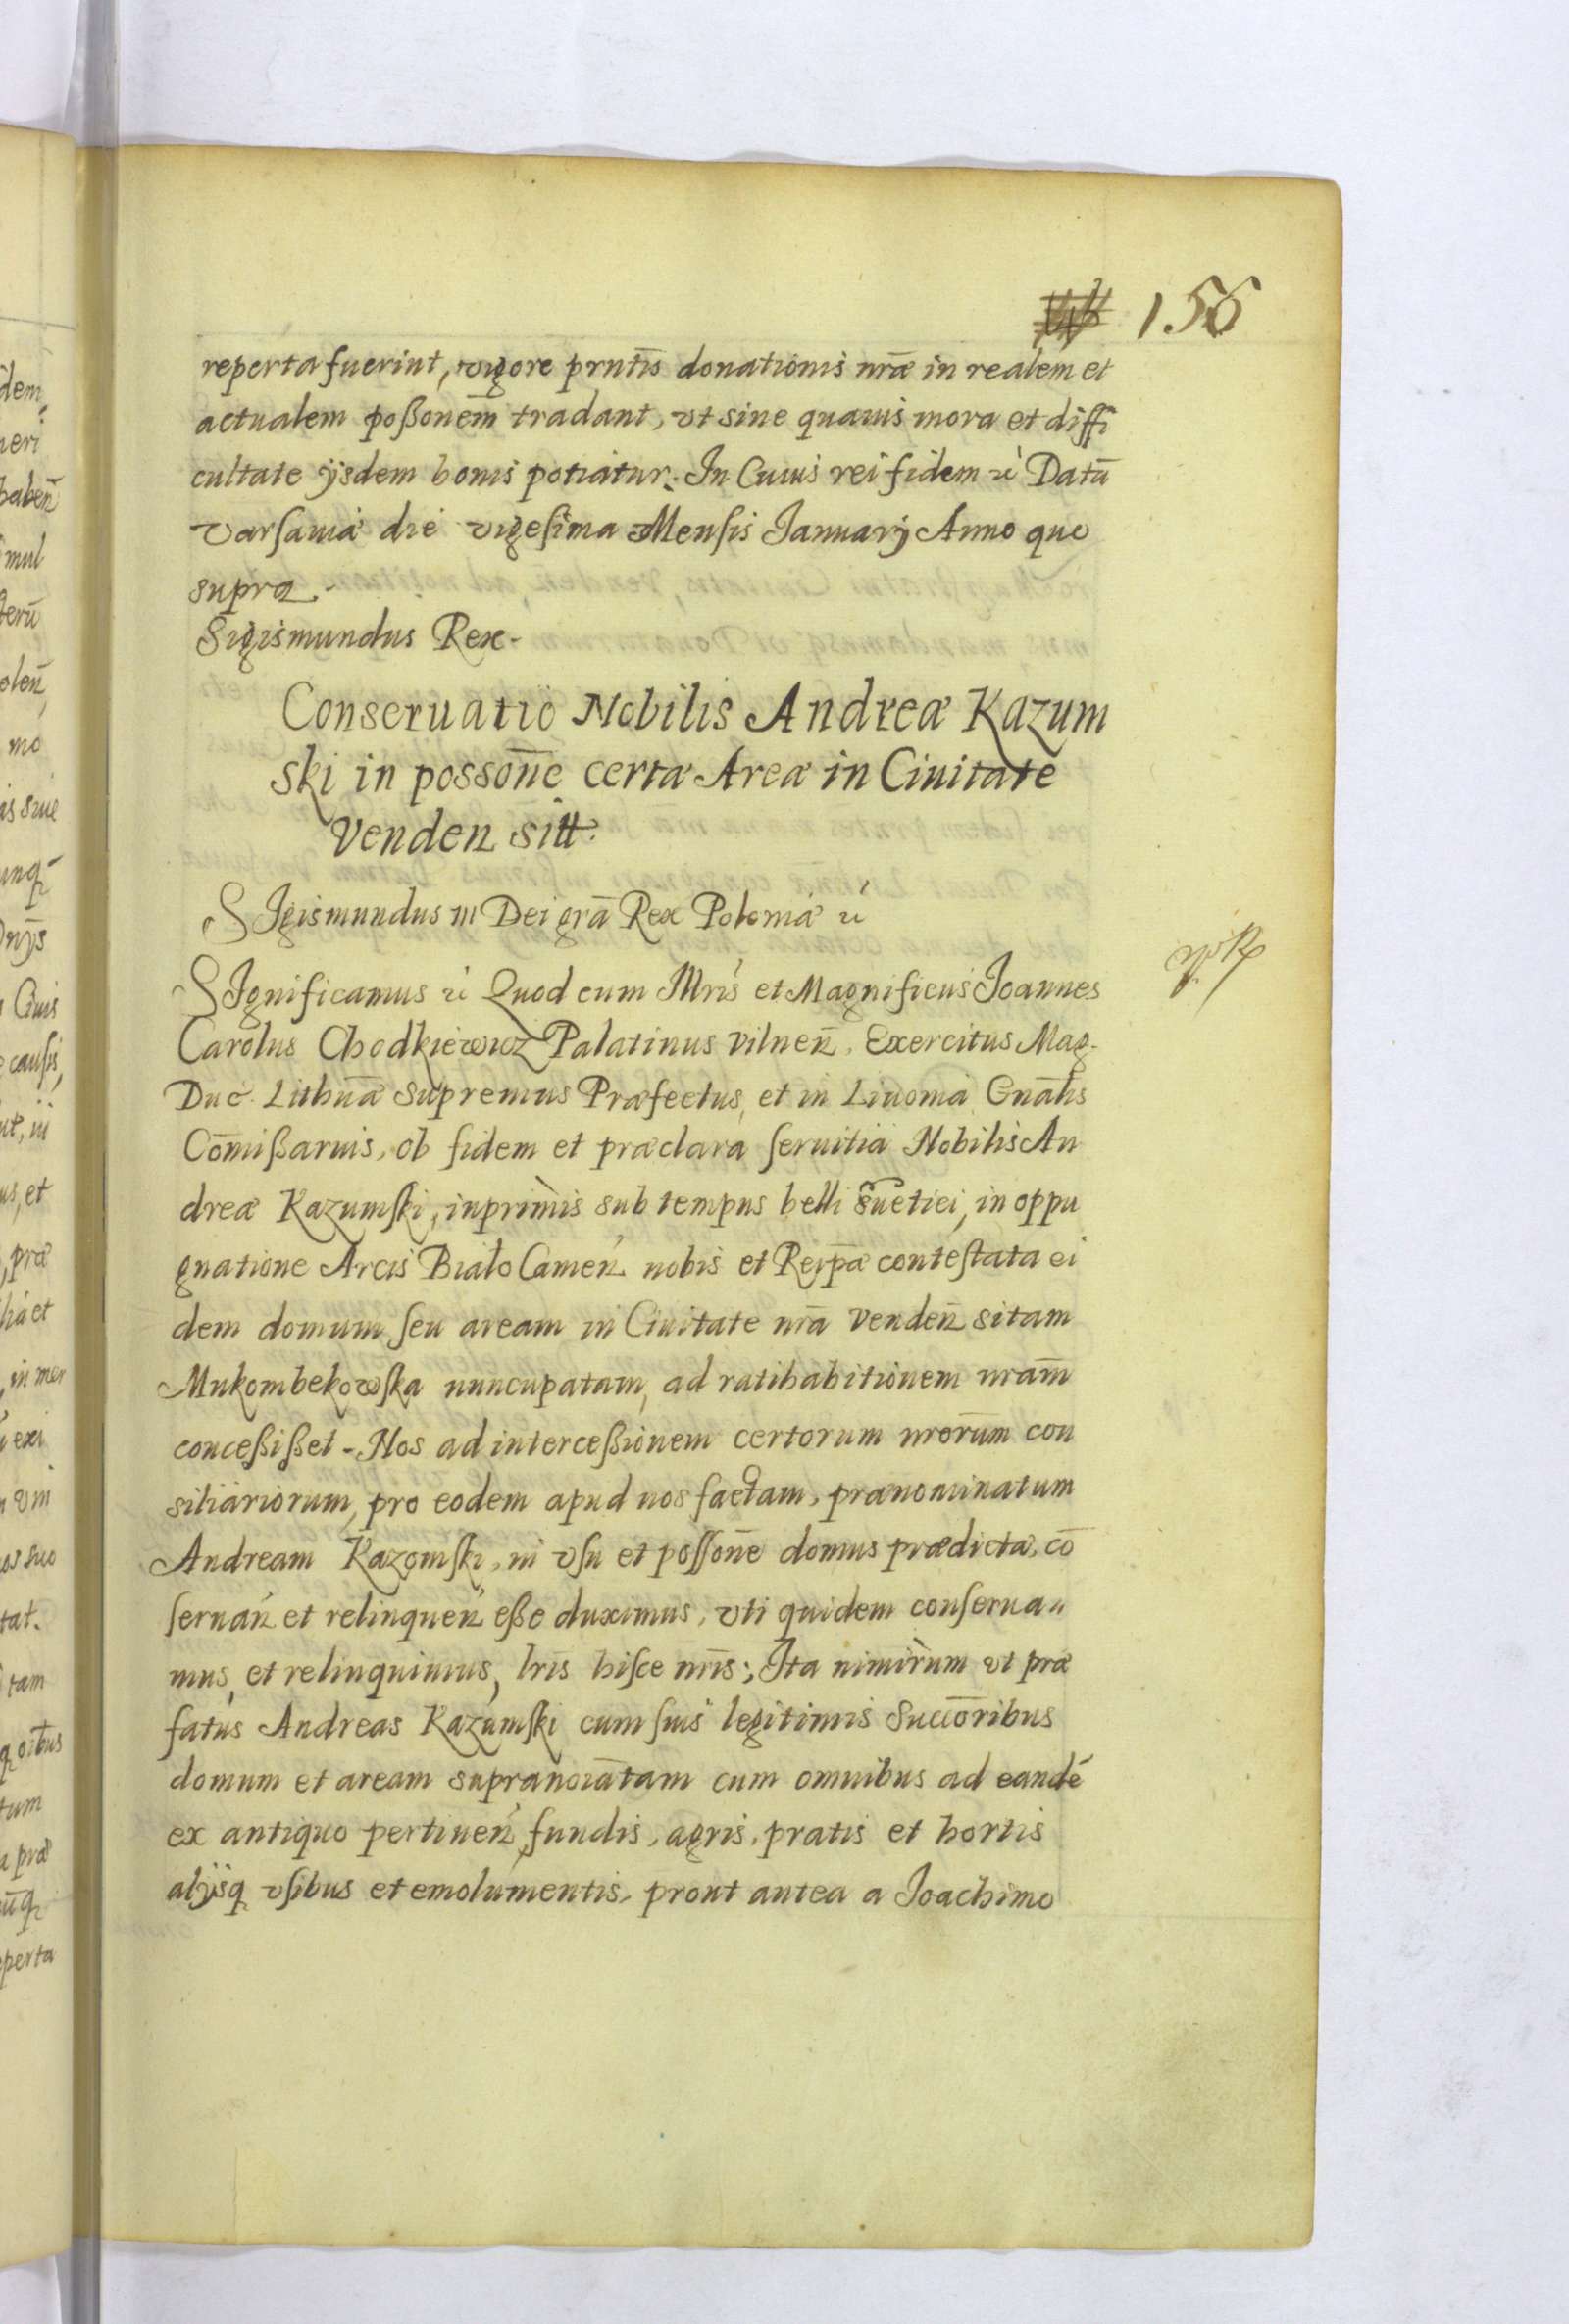 156
reperta fuerint, vigore prntis donationis nrae in realem et
actualem poßonem tradant, vt sine quauis mora et diffi
cultate ijsdem bonis potiatur. In Cuius rei fidem &c Datū
Varsauiae die vigesima Mensis Januarij Anno quo
supra.
Sigismundus Rex.
Conseruatio Nobilis Andreae Kazum
ski in possone certae Areae in Ciuitate
Venden sitt.
SIgismundus III Dei grā Rex Poloniae &c
SIgnificamus &c Quod cum Illris et Magnificus Joannes
Carolus Chodkiewicz Palatinus Vilnen̄. Exercitus Mag.
Duc. Lithuae Supremus Praefectus, et in Liuonia Gnālis
Cōmißarius, ob fidem et praeclara seruitia Nobilis An
dreae Kazumski, inprimis sub tempus belli Suetici, in oppu
gnatione Arcis Biało Camen nobis et Reipae contestata ei
dem domum seu aream in Ciuitate nrā Venden̄ sitam
Mukombekowska nuncupatam, ad ratihabitionem nram̄
conceßißet. Nos ad interceßionem certorum nrorum̄ con
siliariorum, pro eodem apud nos factam, praenominatum
Andream Kazomski, in vsu et possonē domus praedictae, cō
seruan et relinquen eße duximus, vti quidem conserua〃
mus, et relinquimus, lris hisce nris; Ita nimirùm vt prae
fatus Andreas Kazumski cum suis legitimis Succoribus
domum et aream supranoiatam cum omnibus ad eandē
ex antiquo pertinen, fundis, agris, pratis et hortis
alijsq vsibus et emolumentis, prout antea a Joachimo